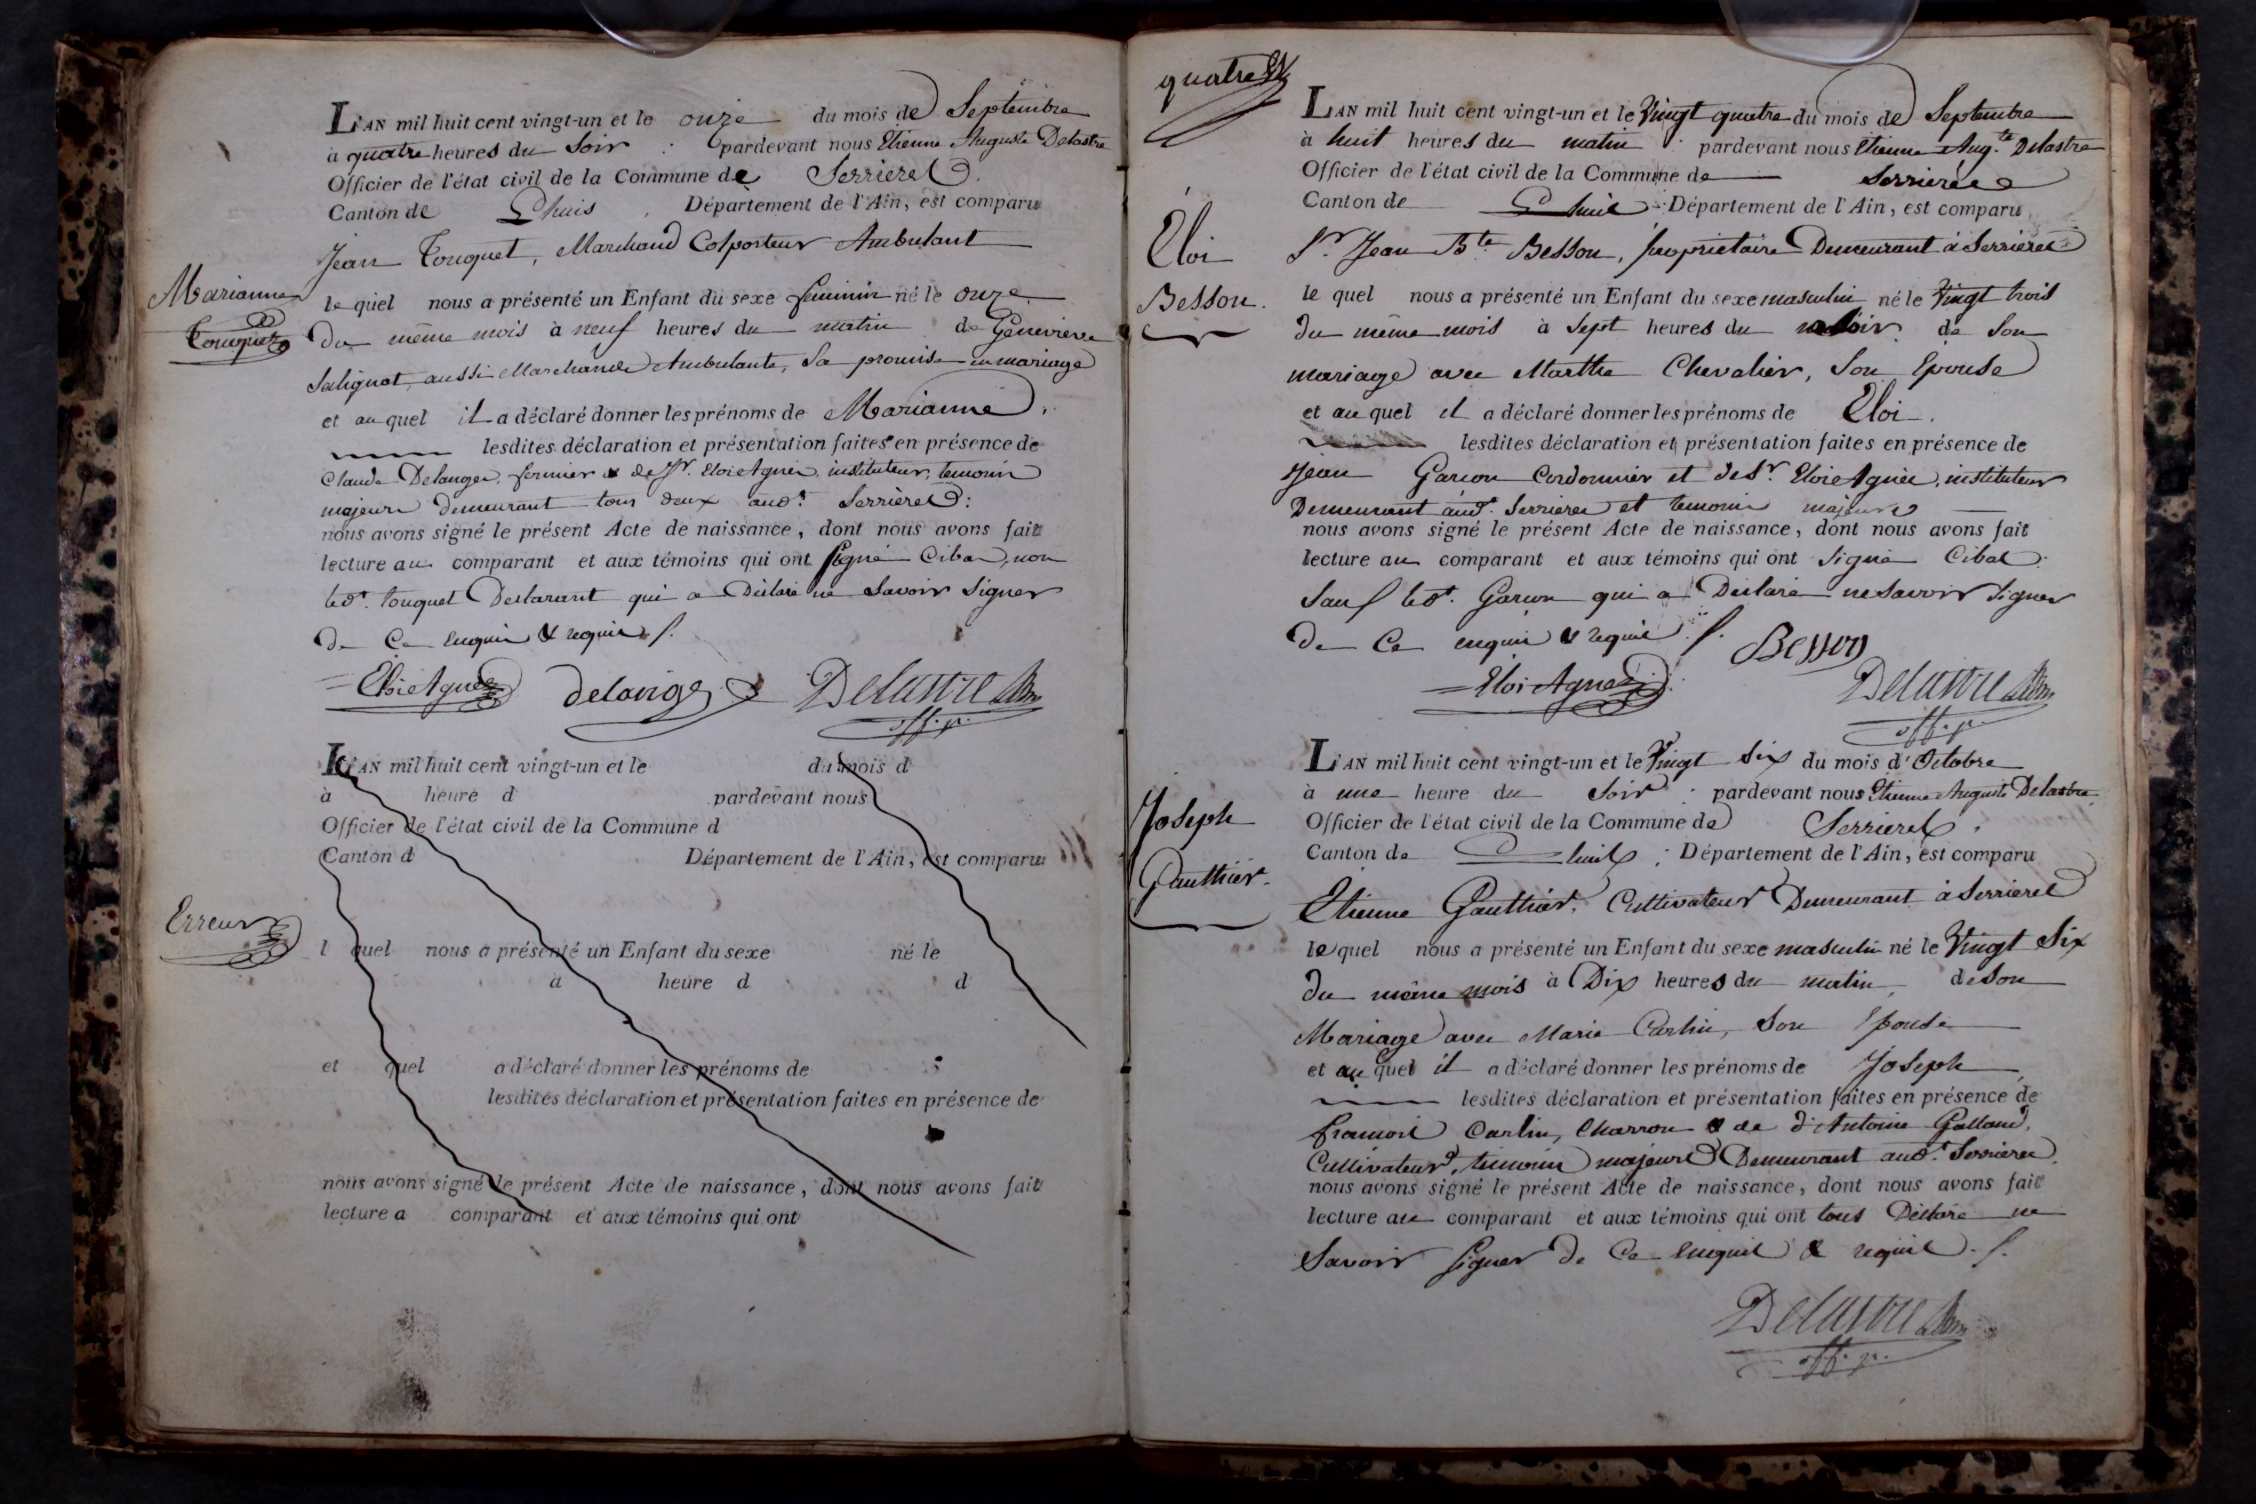 L'AN mil huit cent vingt-un et le onze du mois de Septembre
à quatre heures du Soir : pardevant nous Etienne Auguste Delastre
Officier de l'état civil de la Commune de Serrieres
Canton de Lhuis, Département de l'Ain, est comparu
Jean Touquet, Marchand Colporteur Ambulant
Marianne
Touquet
le quel nous a présenté un Enfant du sexe feminin né le onze
du même mois à neuf heures du matin de Génevieve
Salignat, aussi Marchande Ambulante, Sa promise en mariage
et au quel il a déclaré donner les prénoms de Marianne,
lesdites déclaration et présentation faites en présence de
Claude Delanger, fermier & de Sr. Eloi Agnès, instituteur, temoins
majeurs demeurant tous deux aud.t Serrieres :
nous avons signé le présent Acte de naissance, dont nous avons fait
lecture au comparant et aux témoins qui ont Signé Cibas, non
led.t Touquet Déclarant qui a Déclaré ne Savoir Signer
de Ce Enquis & requis /.
Eloi Agnès delange Delastre
off. p.
L'AN mil huit cent vingt-un et le du mois d
à heure d pardevant nous
Officier de l'état civil de la Commune d
Canton d Département de l'Ain, est comparu
Erreur
l quel nous a présenté un Enfant du sexe né le
à heure d d
et quel a déclaré donner les prénoms de ;
lesdites déclaration et présentation faites en présence de
nous avons signé le présent Acte de naissance, dont nous avons fait
lecture a comparant et aux témoins qui ont
quatre
L'AN mil huit cent vingt-un et le Vingt quatre du mois de Septembre
à huit heures du matin : pardevant nous Etienne Aug.te Delastre
Officier de l'état civil de la Commune de Serrieres
Canton de Lhuis : Département de l'Ain, est comparu
Eloi
Besson.
Sr. Jean Bte Besson, proprietaire Demeurant à Serrieres
le quel nous a présenté un Enfant du sexe masculin né le Vingt trois
du même mois à Sept heures du Soir de Son
mariage avec Marthe Chevalier, Son Epouse
et au quel il a déclaré donner les prénoms de Eloi.
lesdites déclaration et présentation faites en présence de
Jean Garcon Cordonnier et de Sr. Eloi Agnès, instituteur
Demeurant aud.t Serrieres et temoins majeurs
nous avons signé le présent Acte de naissance, dont nous avons fait
lecture au comparant et aux témoins qui ont Signé Cibas
Sauf led.t Garcon qui a Déclaré ne Savoir Signer
de Ce enquis & requis /.
Besson
Eloi Agnès Delastre
off. p.
L'AN mil huit cent vingt-un et le Vingt Six du mois d'Octobre
à une heure du Soir : pardevant nous Etienne Auguste Delastre
Officier de l'état civil de la Commune de Serrieres,
Canton de Lhuis : Département de l'Ain, est comparu
Joseph
Gauthier.
Etienne Gauthier, Cultivateur Demeurant à Serrieres
le quel nous a présenté un Enfant du sexe masculin né le Vingt Six
du même mois à Dix heures du matin, de Son
Mariage avec Marie Carlin, Son Epouse
et au quel il a déclaré donner les prénoms de Joseph
lesdites déclaration et présentation faites en présence de
francois Carlin, Charron & de d'Antoine Galland,
Cultivateur, témoins majeurs Demeurant aud.t Serrieres
nous avons signé le présent Acte de naissance, dont nous avons fait
lecture au comparant et aux témoins qui ont tous Déclaré ne
Savoir Signer de Ce Enquis & requis /.
Delastre
off. p.